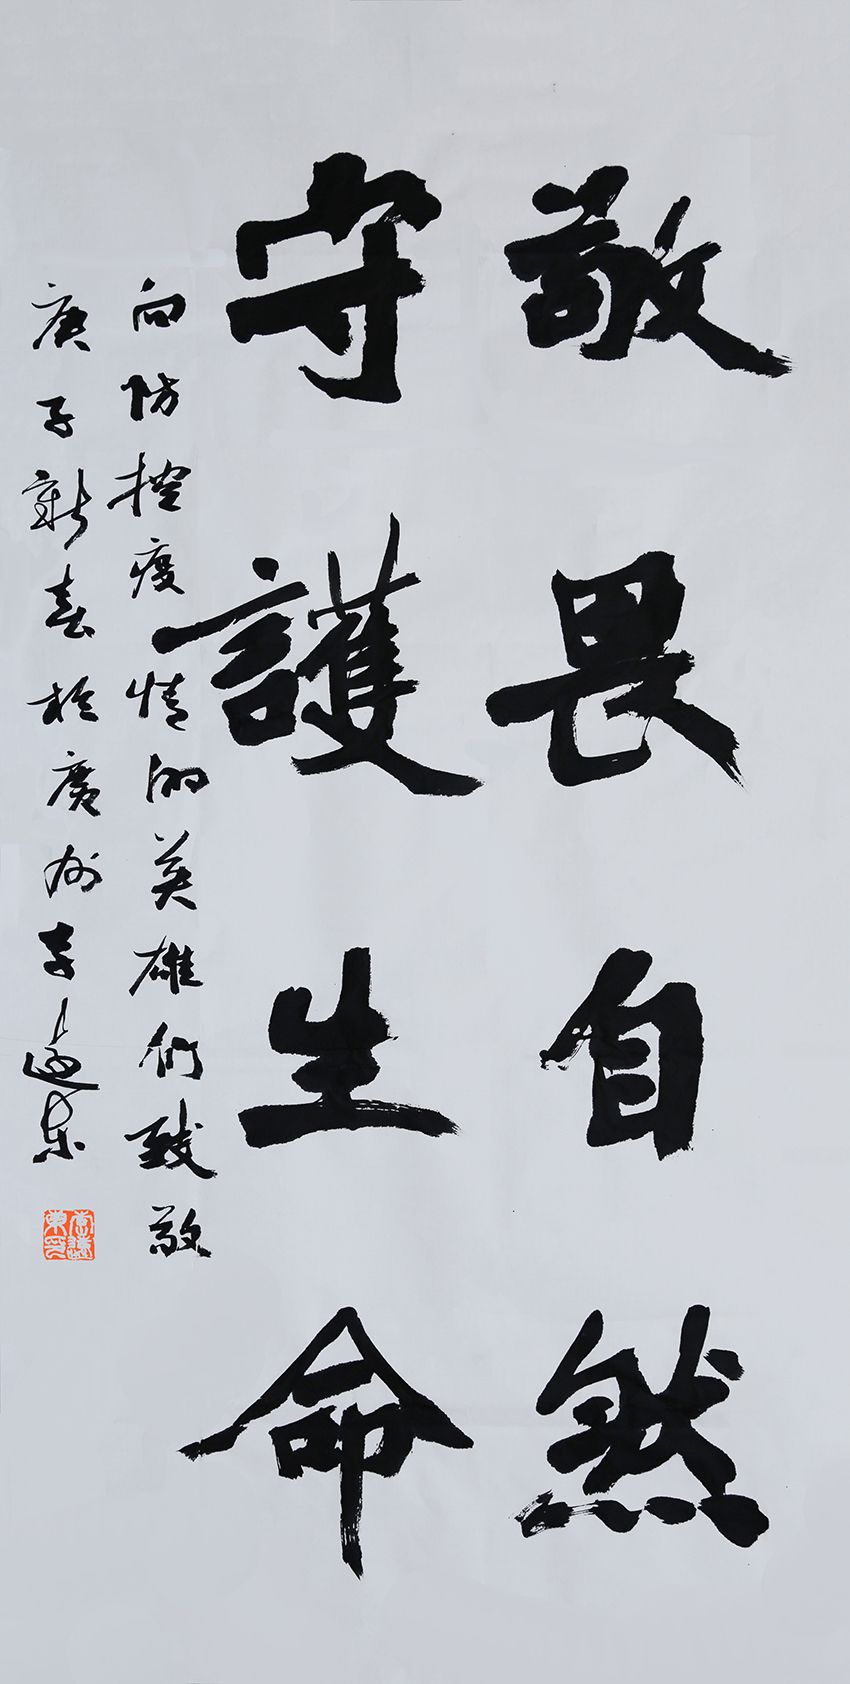 敬畏自然
守護生命
向防控疫情的英雄们致敬
庚子新春於廣州李东